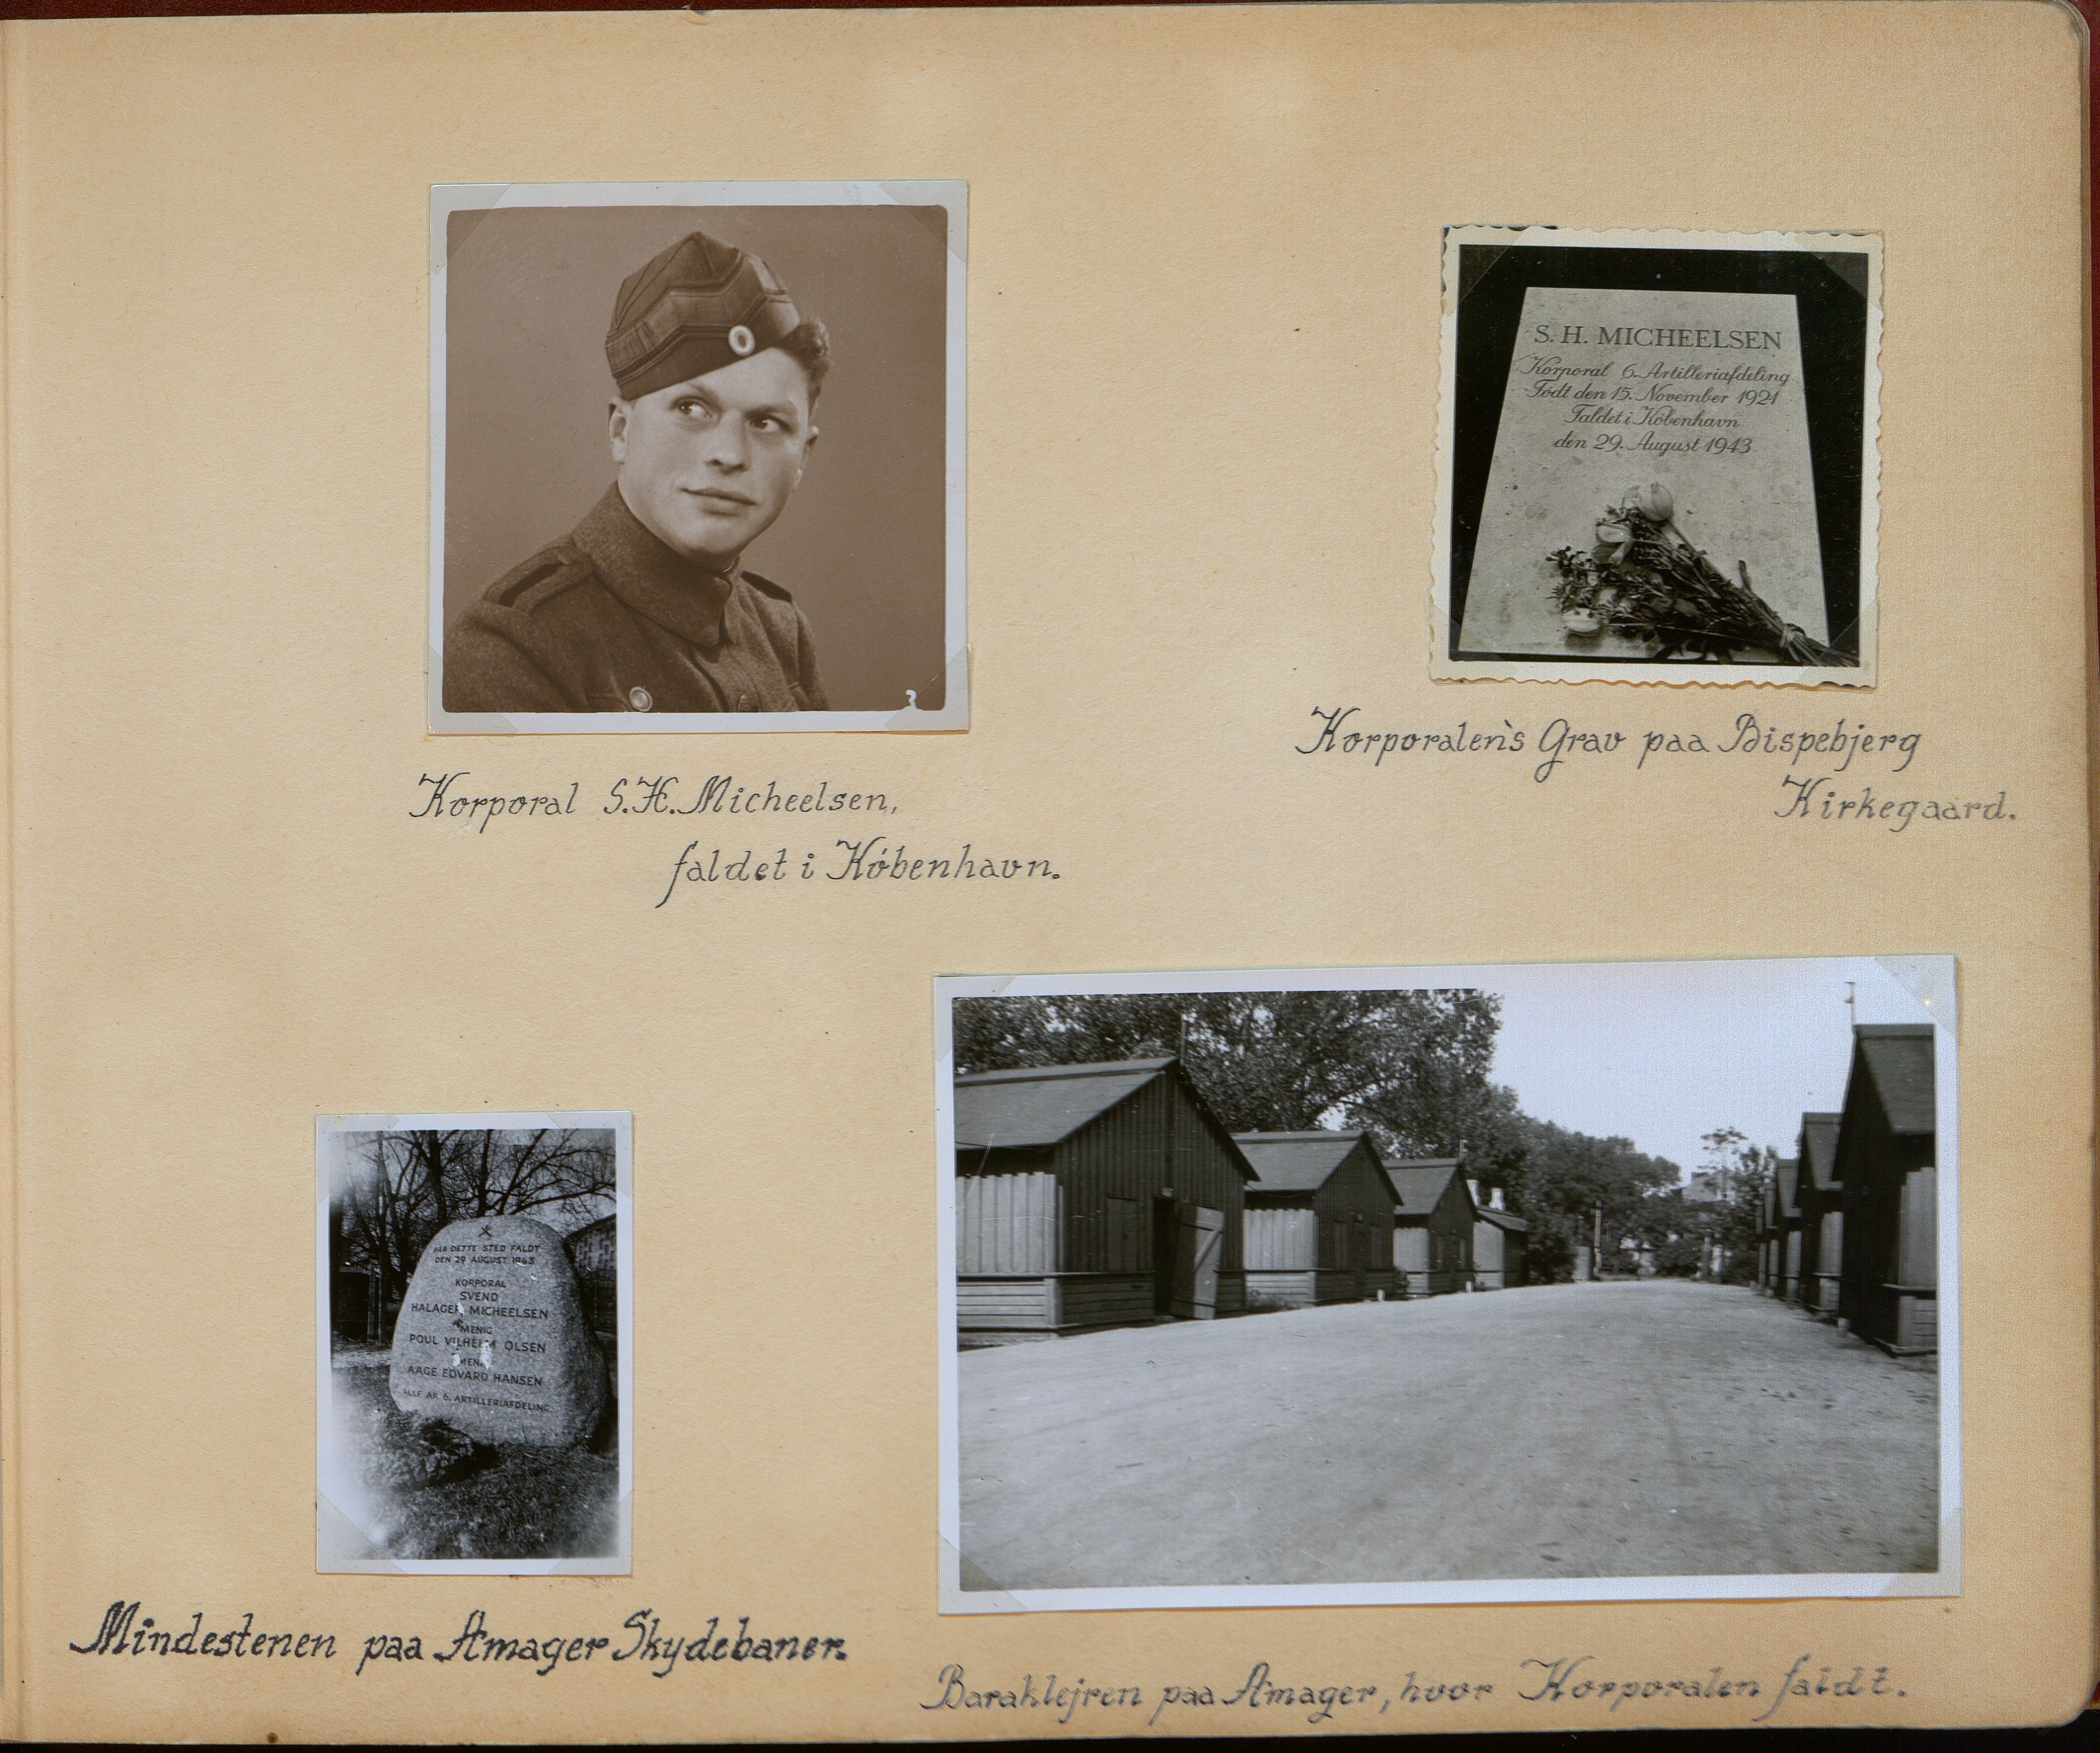 S. H. MICHEELSEN
Korporal 6. Artilleriafdeling
Født den 15. November 1921
Faldet i København
den 29. August 1943
Korporal S.H. Micheelsen,
faldet i København.
Korporalen's Grav paa Bispebjerg
Kirkegaard.
PAA DETTE STED FALDT
DEN 29 AUGUST 1943
KORPORAL
SVEND
HALAGER MICHEELSEN
MENIG
POUL VILHELM OLSEN
MENIG
AAGE EDVARD HANSEN
ALLE AF 6. ARTILLERIAFDELING
Mindestenen paa Amager Skydebaner.
Baraklejren paa Amager, hvor Korporalen faldt.